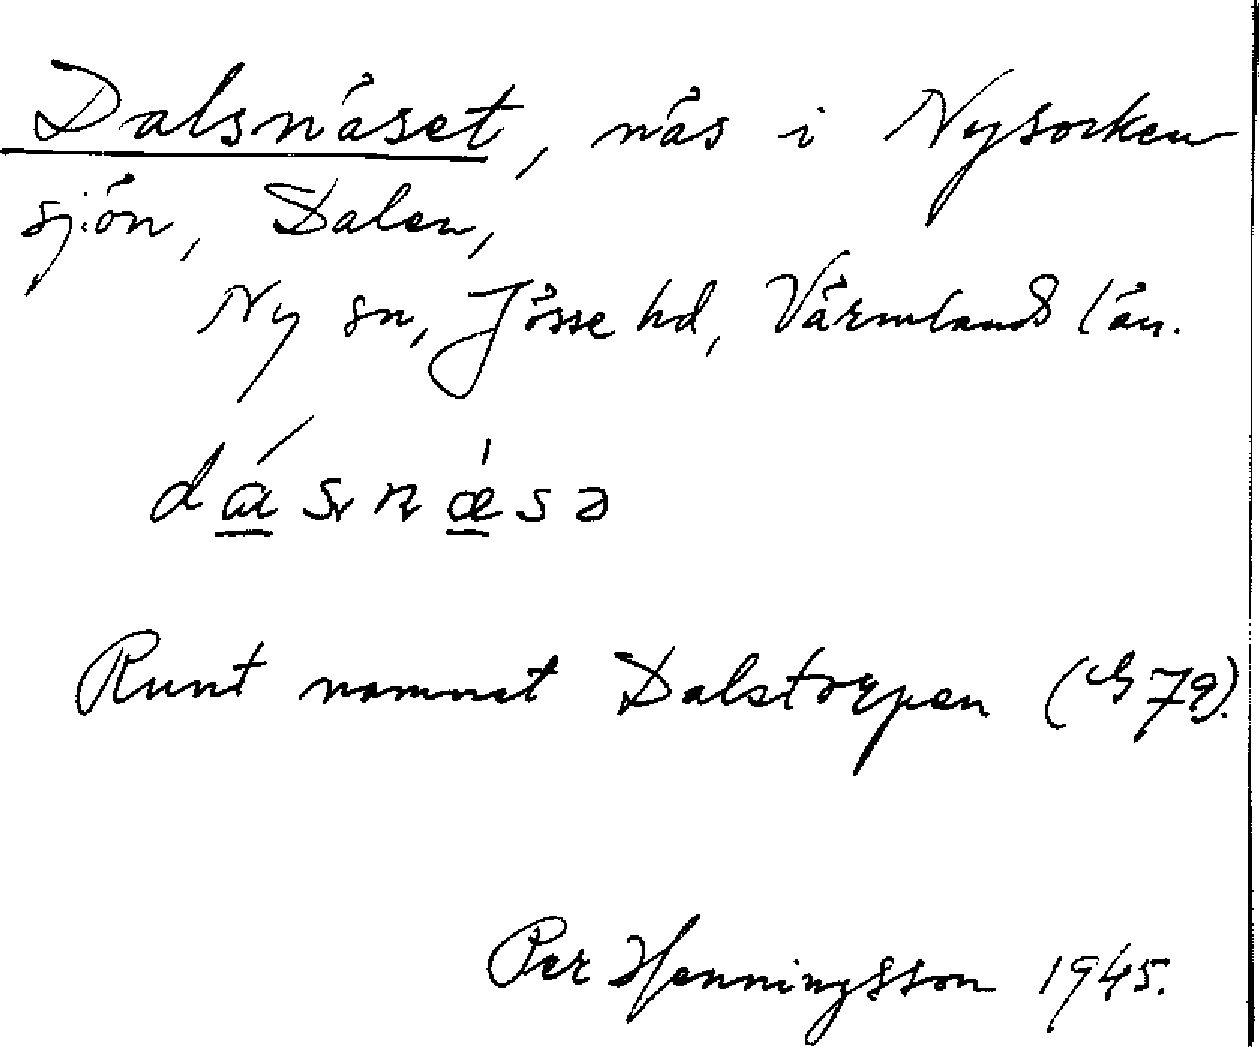 Dalsnäset, näs i Nysocken
sjön, Dalen,
Ny sn, Jösse hd, Värmlands län.
dásnǽsə
Runt namnet Dalstorpen (G 79).
Per Henningsson 1945.